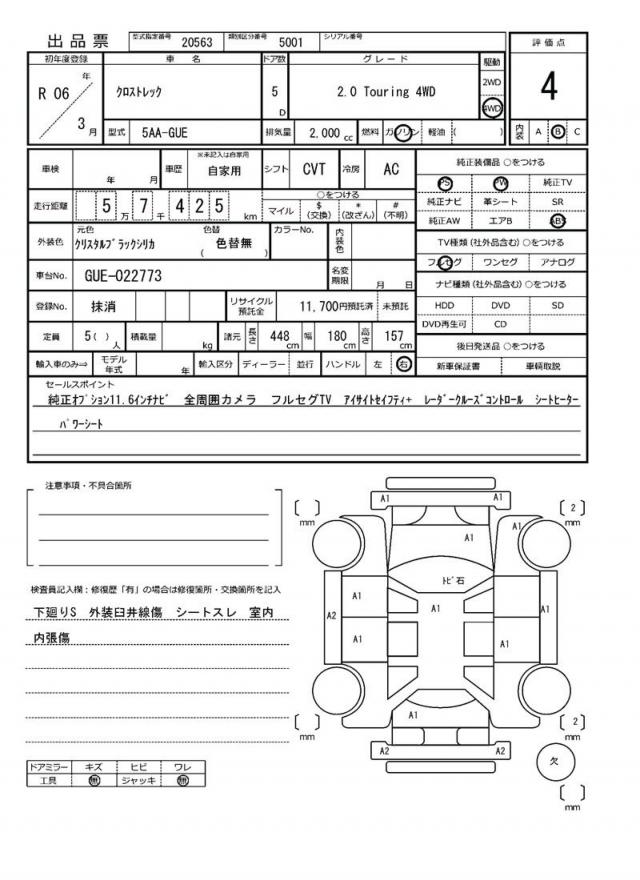 出品票 型式指定番号 20563 類別区分番号 5001 シリアル番号
初年度登録 車名 ドア数 グレード 駆動 評価点
R 06 年 3 月 クロストレック 5 D 2.0 Touring 4WD 2WD 4WD 4
型式 5AA-GUE 排気量 2,000 cc 燃料 ガソリン 軽油 ( ) 内装 A B C
車検 年 月 車歴 ※未記入は自家用 自家用 シフト CVT 冷房 AC 純正装備品 ○をつける
PS PW 純正TV
走行距離 5 万 7 千 4 2 5 km ○をつける マイル $ (交換) * (改ざん) # (不明) 純正ナビ 革シート SR
純正AW エアB ABS
外装色 元色 クリスタルブラックシリカ 色替 ( 色替無 ) カラーNo. 内装色 TV種類 (社外品含む) ○をつける
フルセグ ワンセグ アナログ
車台No. GUE-022773 名変期限 月 日 ナビ種類 (社外品含む) ○をつける
登録No. 抹消 リサイクル預託金 11,700円預託済 未預託 HDD DVD SD
DVD再生可 CD
定員 5( ) 人 積載量 kg 諸元 長さ 448 cm 幅 180 cm 高さ 157 cm 後日発送品 ○をつける
輸入車のみ⇒ モデル年式 年 輸入区分 ディーラー 並行 ハンドル 左 右 新車保証書 車輌取説
セールスポイント
純正オプション11.6インチナビ 全周囲カメラ フルセグTV アイサイトセイフティ+ レーダークルーズコントロール シートヒーター
パワーシート
注意事項・不具合箇所
検査員記入欄：修復歴「有」の場合は修復箇所・交換箇所を記入
下廻りS 外装臼井線傷 シートスレ 室内
内張傷
ドアミラー キズ ヒビ ワレ
工具 無 ジャッキ 無
A1 A1
[ ] mm [ 2 ] mm
A1 A1
トビ石
A1 A1
A2 A1
A1 A1
A1 A1
[ ] mm [ 2 ] mm
A2 A2
欠
[ ] mm